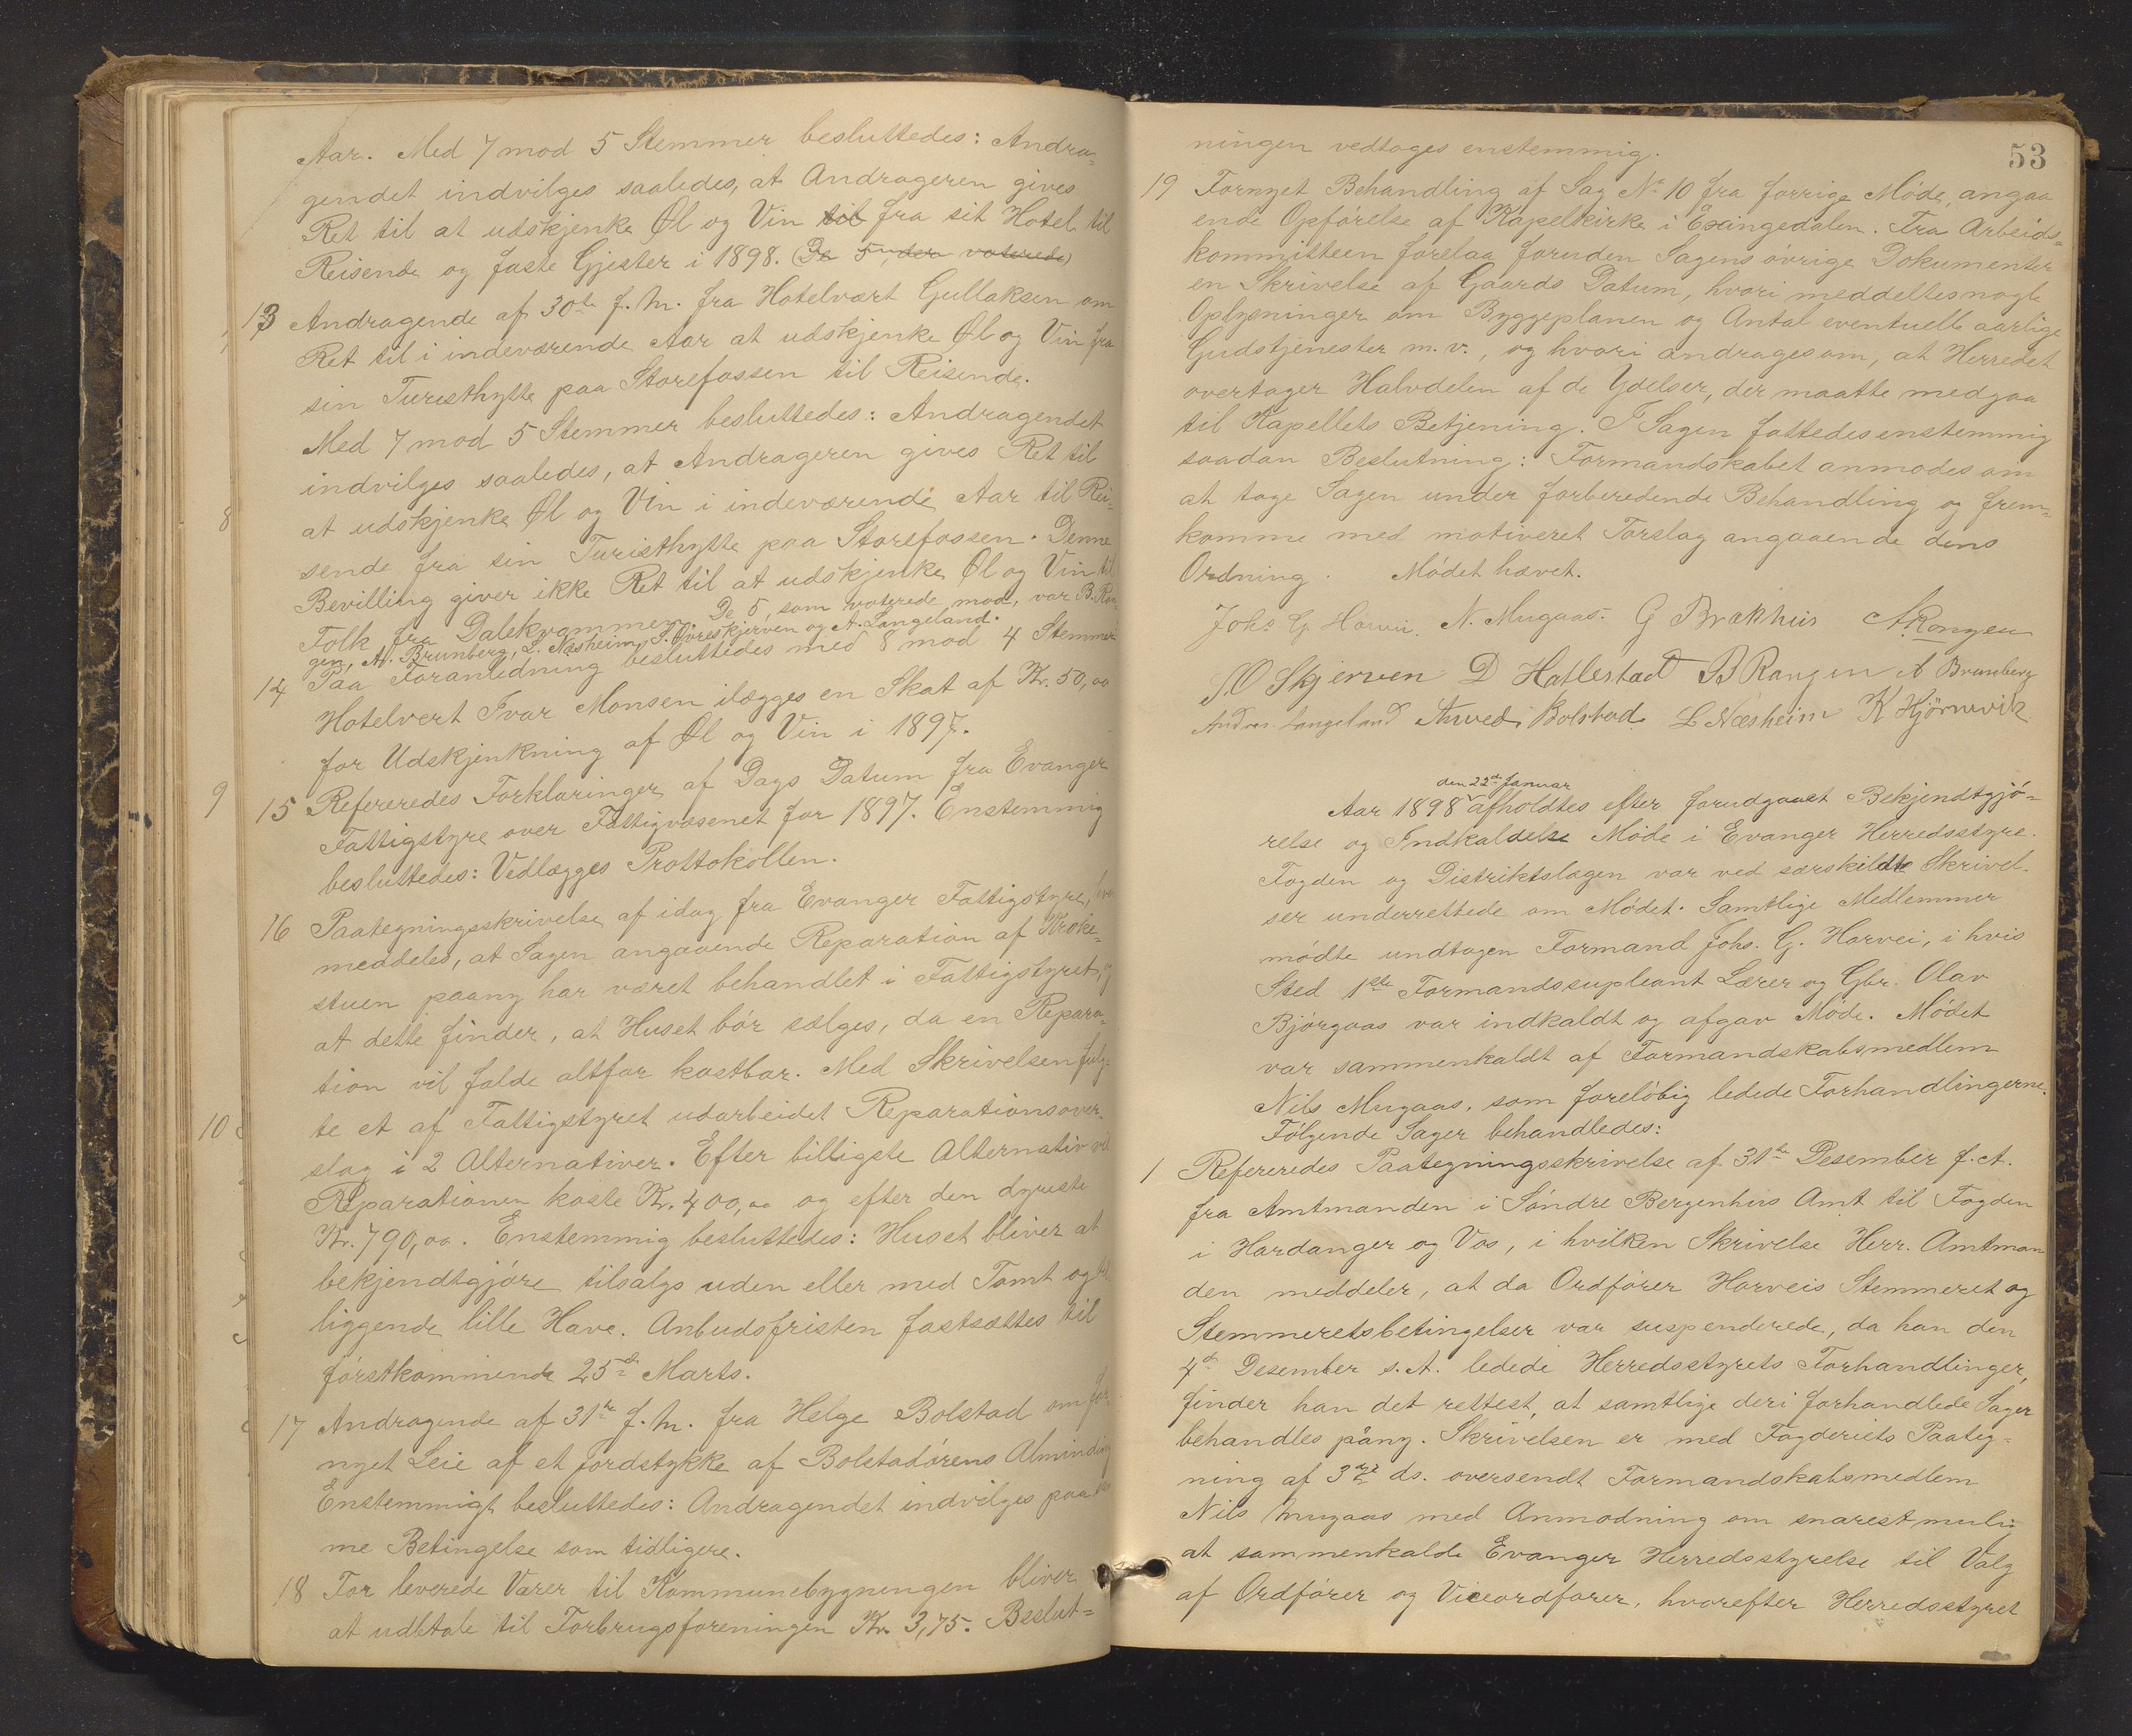 Aar. Med 7 mod 5 Stemmer besluttedes: Andra=
gendet indvilges saaledes, at Andrageren gives
Ret til at udskjenke Øl og Vin til fra sit Hotel til
Reisende og faste Gjester i 1898. (De 5, der voterede)
13 Andragende af 30te f. M. fra Hotelvært Gullaksen om
Ret til i indeværende Aar at udskjenke Øl og Vin fra
sin Turisthytte paa Storefossen til Reisende.
Med 7 mod 5 Stemmer besluttedes: Andragendet
indvilges saaledes, at Andrageren gives Ret til
at udskjenke Øl og Vin i indeværende Aar til Rei-
sende fra sin Turisthytte paa Storefossen. Denne
Bevilling giver ikke Ret til at udskjenke Øl og Vin til
Folk fra Dalekvammen. De 5, som voterede mod, var B. Ron-
gen, A. Brunberg, L. Næsheim, S. Øvreskjerven og A. Langeland.
14 Paa Foranledning besluttedes med 8 mod 4 Stemmer
Hotelvert Ivar Monsen ilægges en Skat af Kr. 50,00
for Udskjenkning af Øl og Vin i 1897.
15 Refereredes Forklaringer af Dags Datum fra Evanger
Fattigstyre over Fattigvæsenet for 1897. Enstemmig
besluttedes: Vedlægges Prottokollen.
16 Paategningsskrivelse af idag fra Evanger Fattigstyre, hvo
meddeles, at Sagen angaaende Reparation af Kroke=
stuen paany har været behandlet i Fattigstyret, og
at dette finder, at Huset bör sælges, da en Repara=
tion vil falde altfor kostbar. Med Skrivelsen fulg-
te et af Fattigstyret udarbeidet Reparationsover-
slag i 2 Alternativer. Efter billigste Alternativ vil
Reparationen koste Kr. 400,00 og efter den dyreste
Kr. 790,00. Enstemmig besluttedes: Huset bliver at
bekjendtgjöre tilsalgs uden eller med Tomt og
liggende lille Have. Anbudsfristen fastsættes til
förstkommende 25de Marts.
17 Andragende af 31te f. M. fra Helge Bolstad om for-
nyet Leie af et Jordstykke af Bolstadörens Alminding
Enstemmigt besluttedes: Andragendet indvilges paa sam
me Betingelse som tidligere.
18 For leverede Varer til Kommunebygningen bliver
at udbetale til Forbrugsforeningen Kr. 3,75. Beslut=
8
9
10
53
ningen vedtages enstemmig.
19 Fornyet Behandling af Sag No 10 fra forrige Møde, angaa
ende Opförelse af Kapelkirke i Exingedalen. Fra Arbeids=
kommitteen forelaa foruden Sagens övrige Dokumenter
en Skrivelse af Gaards Datum, hvori meddeltes nogle
Oplysninger om Byggeplanen og Antal eventuelle aarlige
Gudstjenester m. v., og hvori andrages om, at Herredet
overtager Halvdelen af de Ydelser, der maatte medgaa
til Kapellets Betjening. I Sagen fattedes enstemmig
saadan Beslutning: Formandskabet anmodes om
at tage Sagen under forberedende Behandling og frem=
komme med motiveret Forslag angaaende dens
Ordning. Mödet hævet.
Johs G. Horvei. N. Mugaas. G Brækhus A Rongen
S. O Skjerven D Hatlestad B Rongen A Brunberg
Andres Langeland Anved Bolstad L Næsheim K Kjörnevik
den 22de Januar
Aar 1898 afholdtes efter forudgaaet Bekjendtgjö=
relse og Indkaldelse Møde i Evanger Herredsstyre.
Fogden og Distriktslægen var ved særskildte Skrivel-
ser underrettede om Mödet. Samtlige Medlemmer
mödte undtagen Formand Johs. G. Horvei, i hvis
Sted 1ste Formandssupleant Lærer og Gbr. Olav
Björgaas var indkaldt og afgav Möde. Mödet
var sammenkaldt af Formandskabsmedlem
Nils Mugaas, som forelöbig ledede Forhandlingerne.
Fölgende Sager behandledes:
1 Refereredes Paategningsskrivelse af 31te Desember f. A.
fra Amtmanden i Söndre Bergenhus Amt til Fogden
i Hardanger og Vos, i hvilken Skrivelse Herr. Amtman
den meddeler, at da Ordförer Horveis Stemmeret og
Stemmeretsbetingelser var suspenderede, da han den
4de Desember s. A. ledede Herredsstyrets Forhandlinger,
finder han det rettest, at samtlige deri forhandlede Sager
behandles påny. Skrivelsen er med Fogderiets Paateg=
ning af 3die ds. oversendt Formandskabsmedlem
Nils Mugaas med Anmodning om snarest mulig
at sammenkalde Evanger Herredsstyrelse til Valg
af Ordförer og Viceordfører, hvorefter Herredsstyret